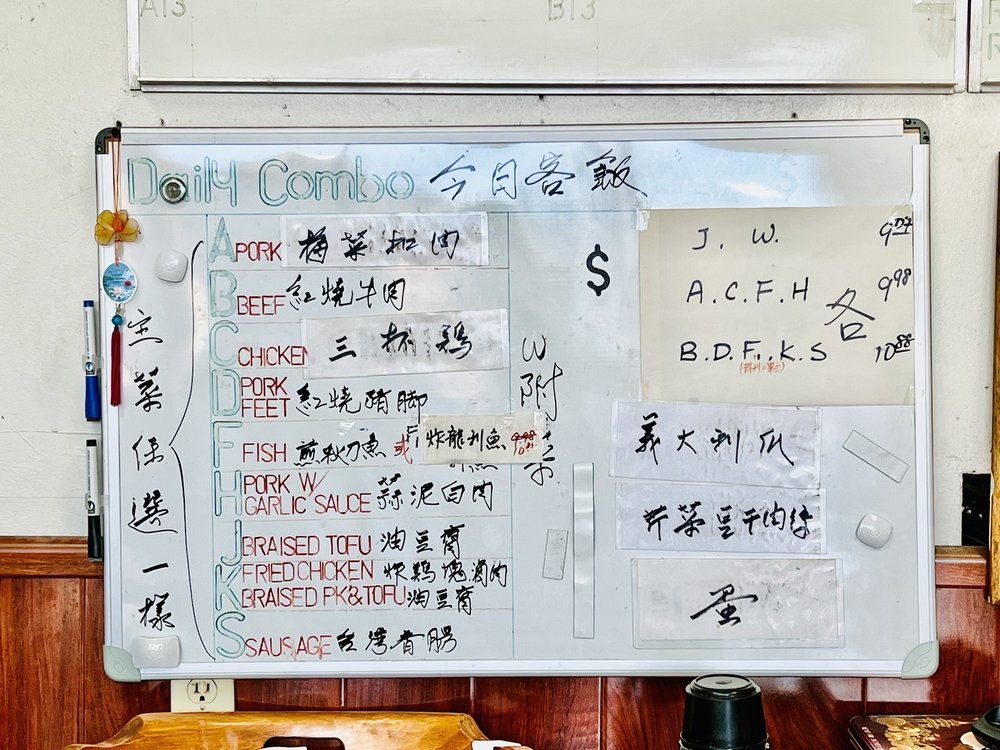 A13
B13
Daily Combo 今日客飯
主菜任選一樣
A PORK 梅菜扣肉
B BEEF 紅燒牛肉
C CHICKEN 三杯鷄
D PORK FEET 紅燒豬腳
F FISH 煎秋刀魚 或 F1 炸龍利魚
H PORK W/ GARLIC SAUCE 蒜泥白肉
J BRAISED TOFU 油豆腐
K FRIED CHICKEN 炸鷄塊滷肉
BRAISED PK&TOFU 油豆腐
S SAUSAGE 台灣香腸
W 附菜
$
J. W.
A.C.F.H 9.98
各
B.D.F1.K.S 10.88
義大利瓜
芹菜豆干肉絲
蛋